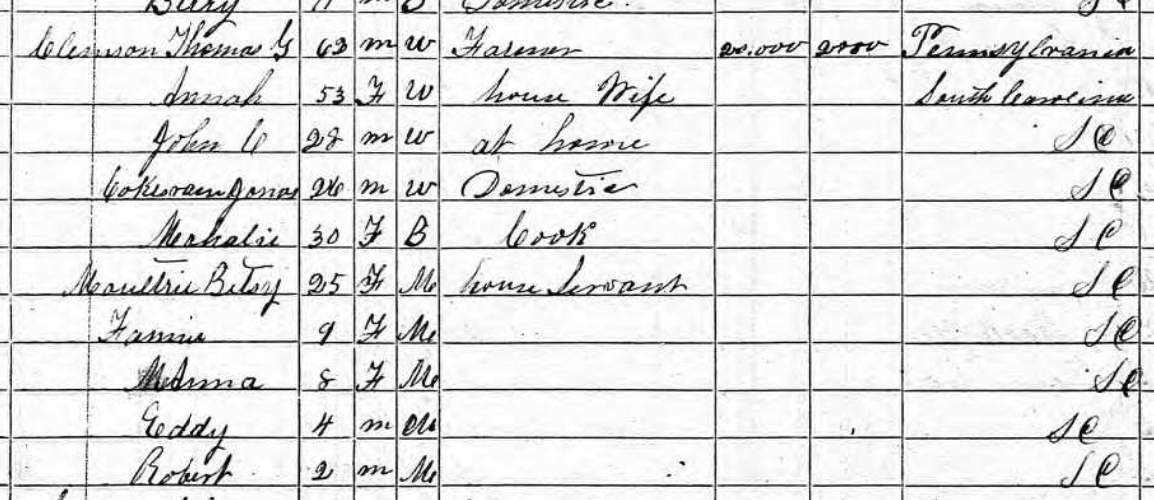 Domestic S C
Clemson Thomas G 63 m W Farmer 20.000 2000 Pennsylvania
Annah 53 F W house Wife South Carolina
John C 28 m W at home S C
Jonas 26 m W Domestic S C
Mahalie 30 F B Cook S C
Moultrie Betsy 25 F Mu house Servant S C
Fannie 9 F Mu S C
Anna 8 F Mu S C
Eddy 4 m Mu S C
Robert 2 m Mu S C